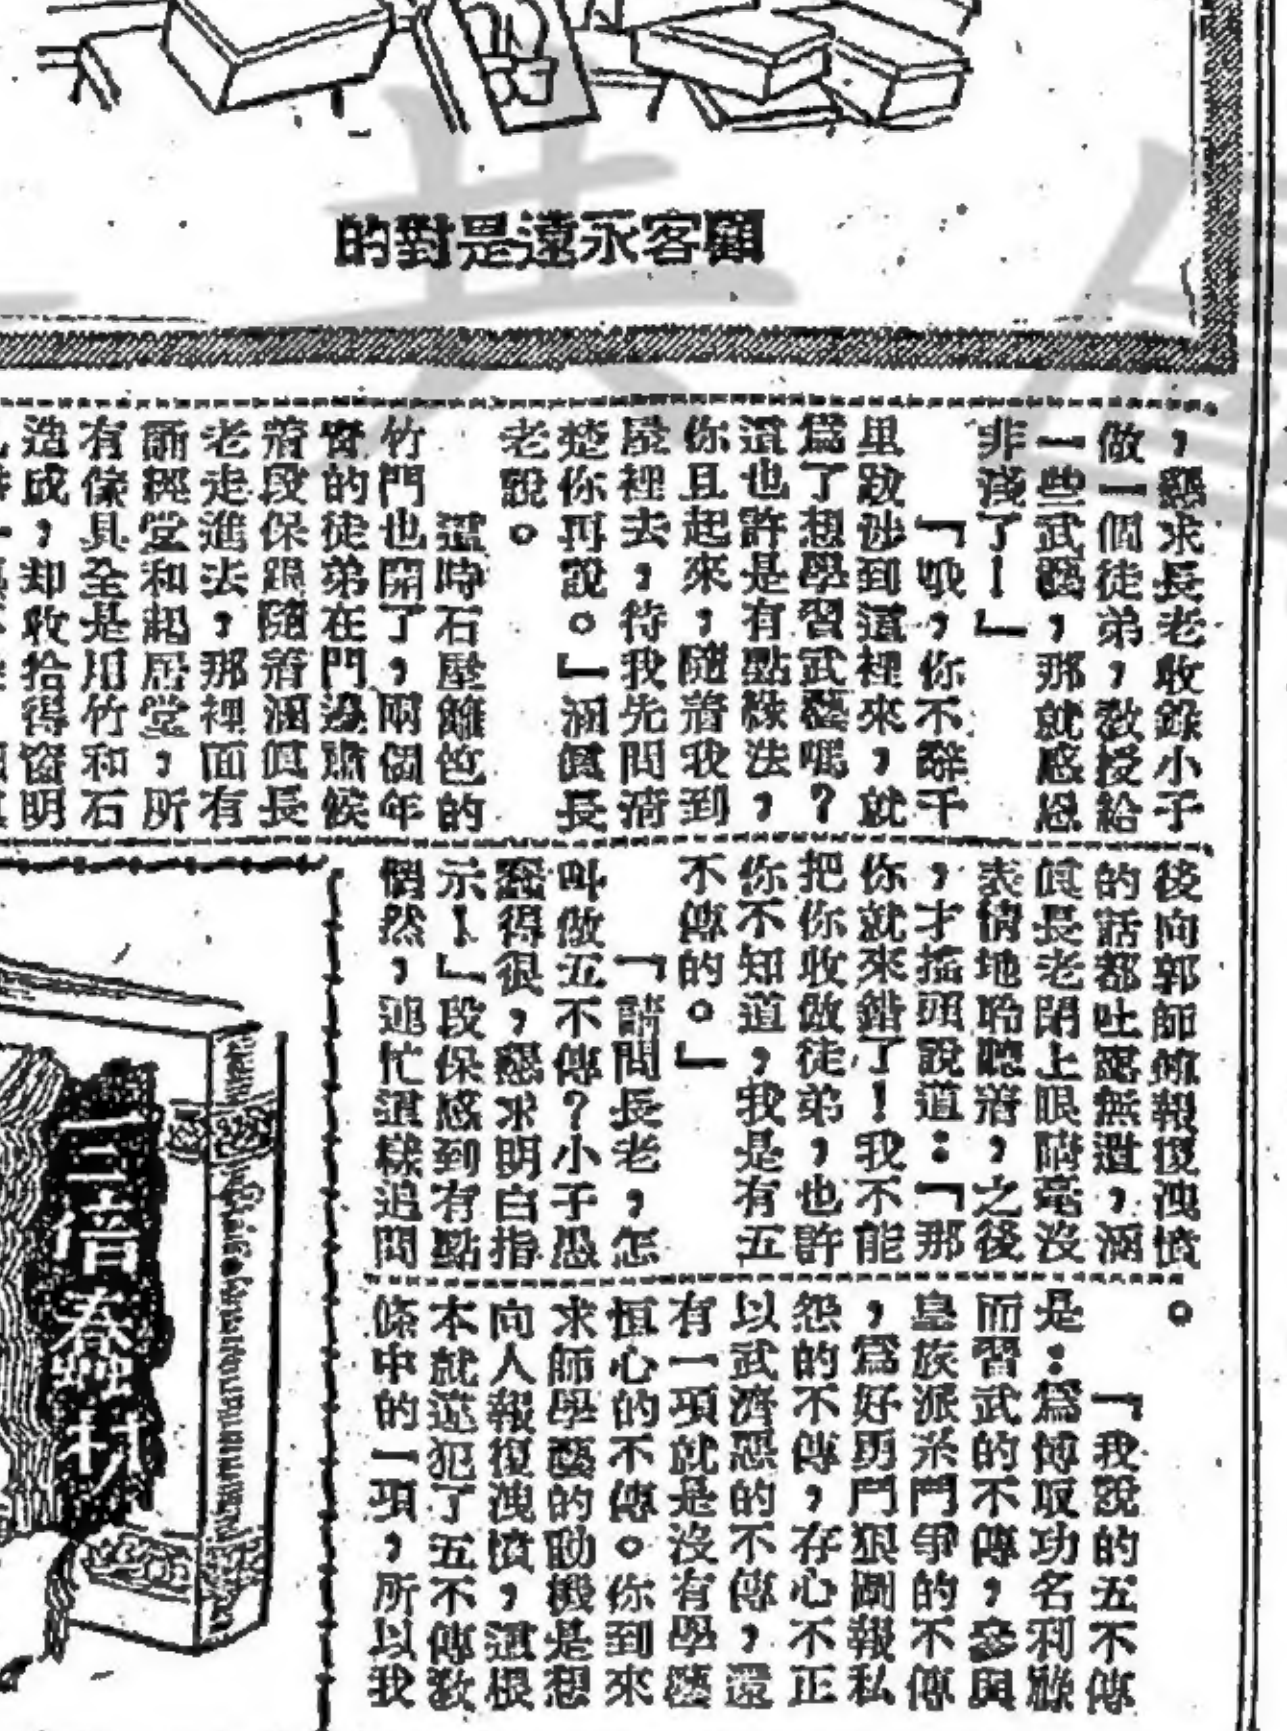 顧客永遠是對的
，懇求長老收錄小子
做一個徒弟，敎授給
一些武藝，那就感恩
非淺了！」
「哦，你不辭千
里跋涉到這裡來，就
爲了想學習武藝嗎？
這也許是有點緣法，
你且起來，隨着我到
屋裡去，待我先問清
楚你再說。」涵眞長
老說。
這時石屋籬笆的
竹門也開了，兩個年
靑的徒弟在門邊肅候
着段保跟隨着涵眞長
老走進去，那裡面有
誦經堂和起居堂，所
有傢具全是用竹和石
造成，却收拾得窗明
後向郭師爺報復洩憤
的話都吐露無遺，涵
眞長老閉上眼睛毫沒
表情地聆聽着，之後
，才搖頭說道：「那
你就來錯了！我不能
把你收做徒弟，也許
你不知道，我是有五
不傳的。」
「請問長老，怎
叫做五不傳？小子愚
蠢得很，懇求明白指
示！」段保感到有點
惘然，連忙這樣追問
。
「我說的五不傳
是：爲博取功名利祿
而習武的不傳，參與
皇族派系鬥爭的不傳
，爲好勇鬥狠圖報私
怨的不傳，存心不正
以武濟惡的不傳，還
有一項就是沒有學藝
恒心的不傳。你到來
求師學藝的動機是想
向人報復洩憤，這根
本就違犯了五不傳敎
條中的一項，所以我